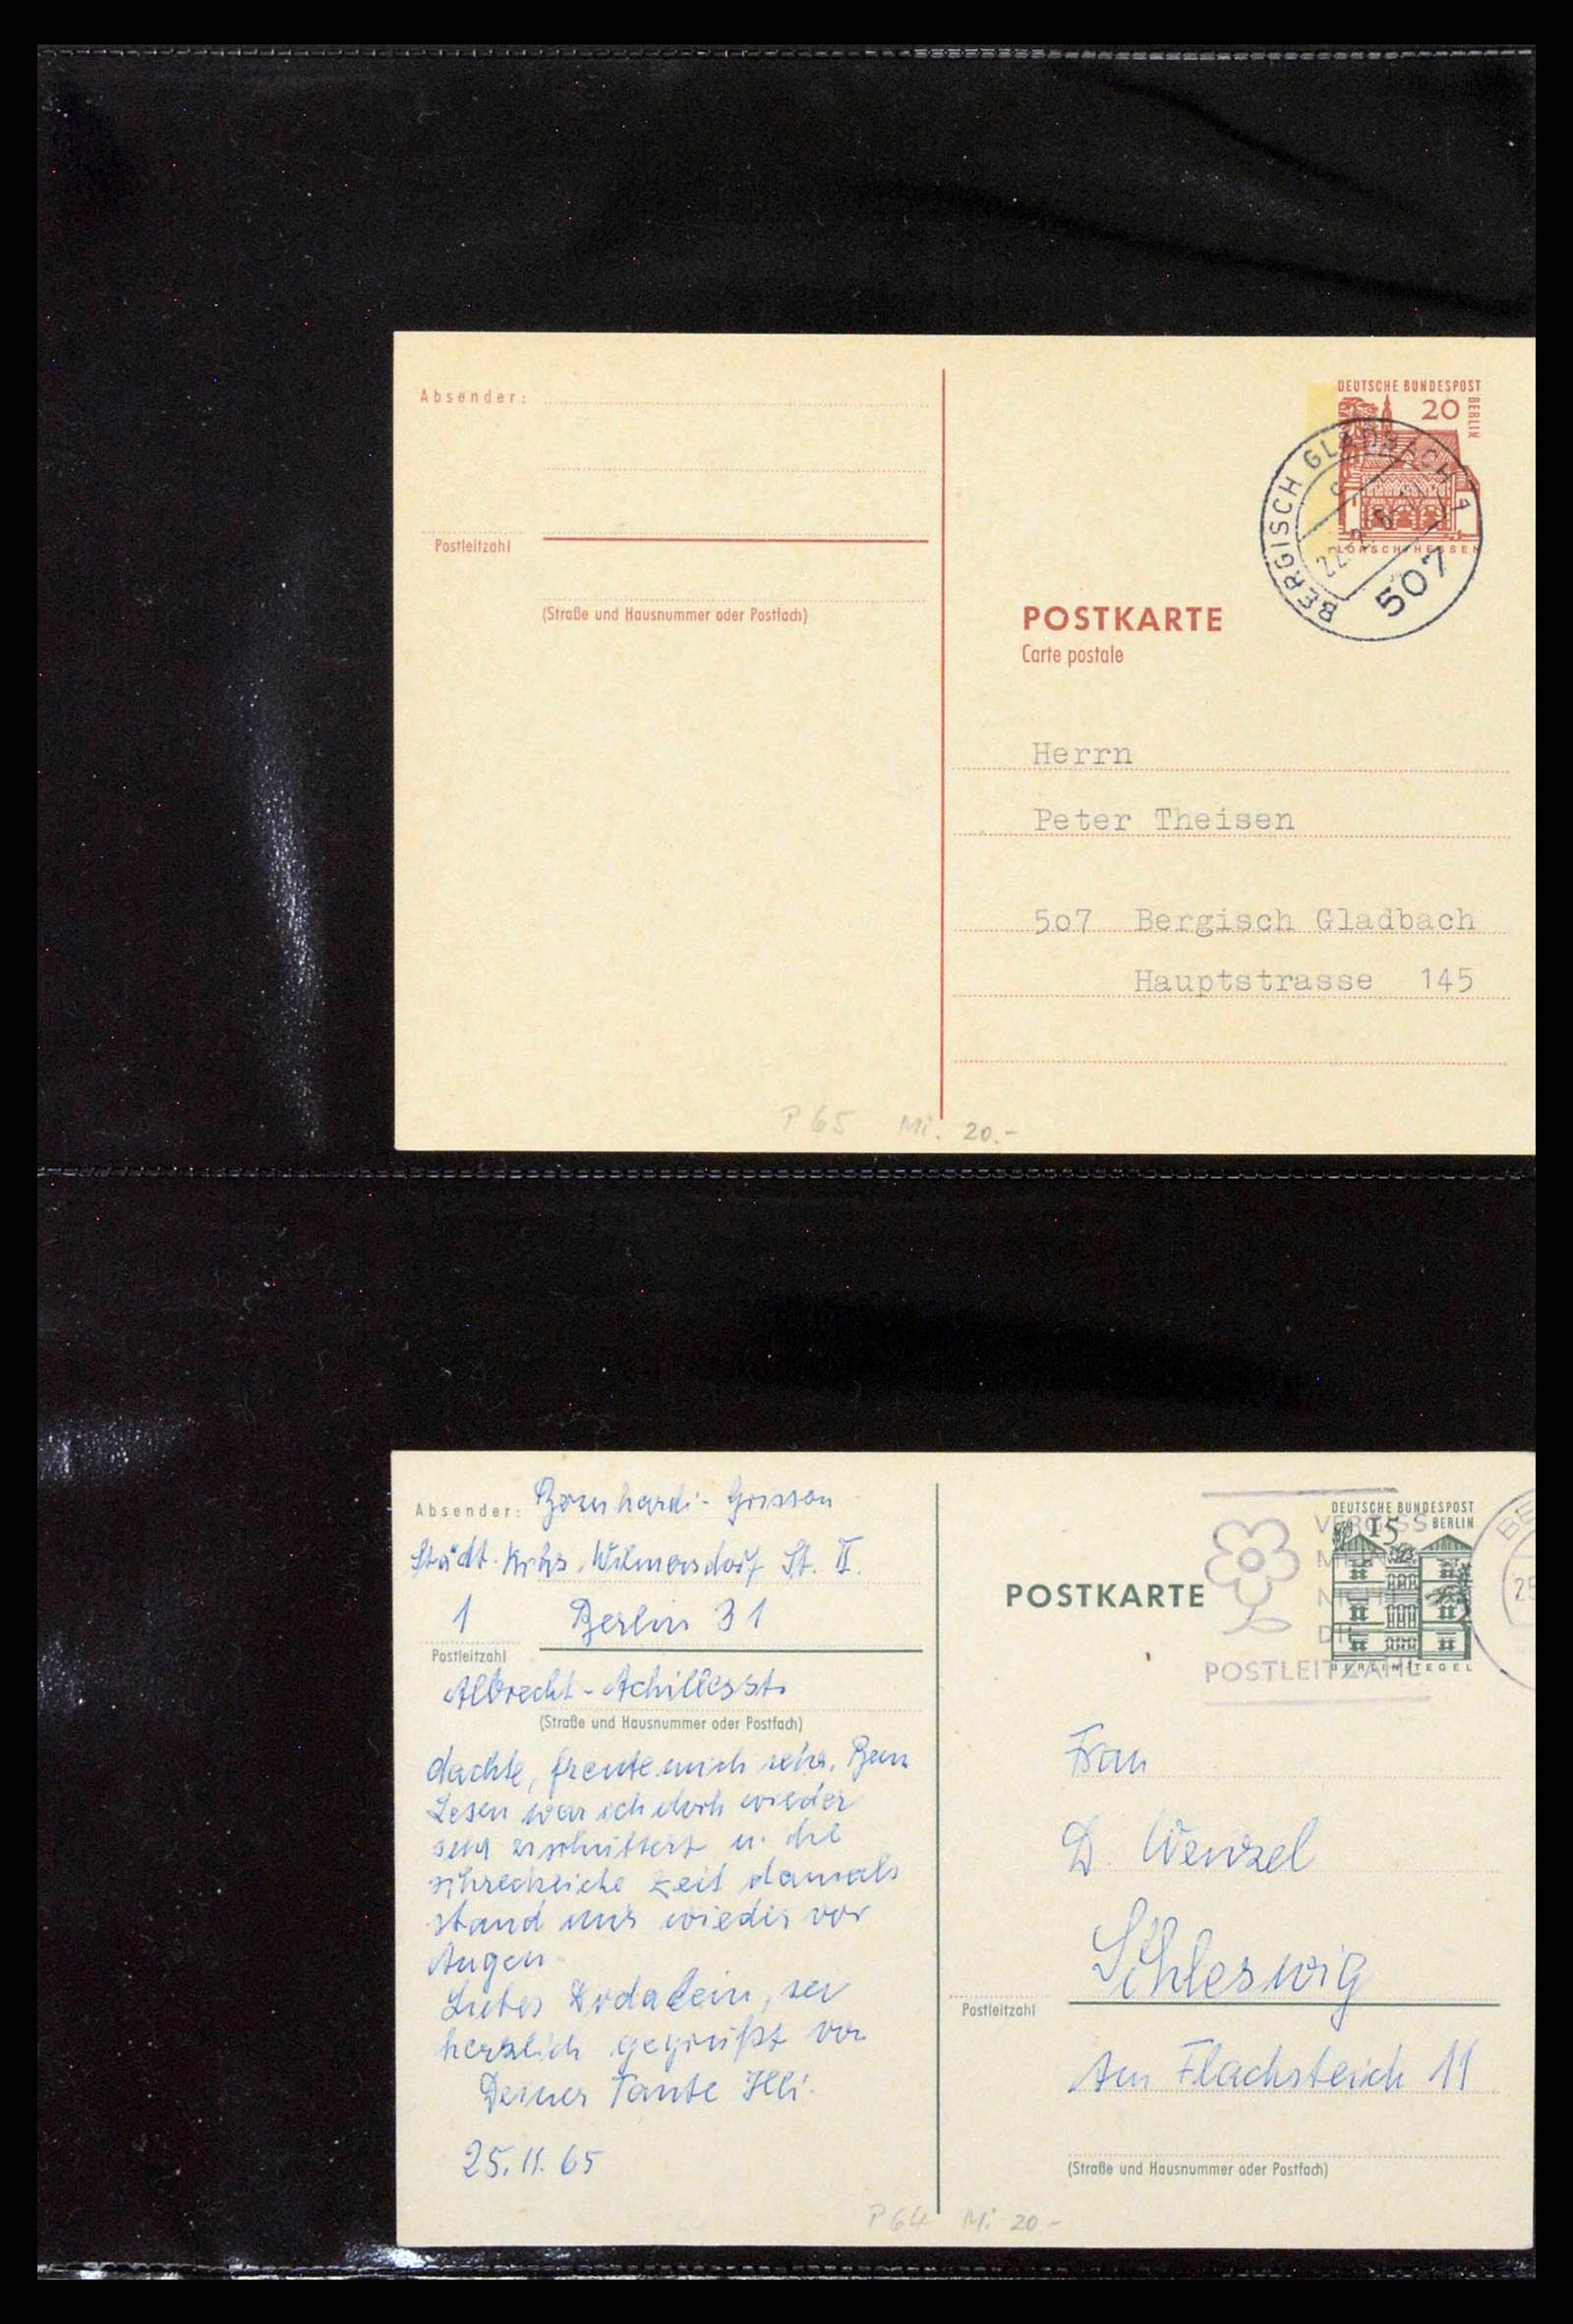 Absender:
Postleitzahl
(Straße und Hausnummer oder Postfach)
DEUTSCHE BUNDESPOST
BERLIN
20
LORSCH/HESSEN
BERGISCH GLADBACH 1
c
507
POSTKARTE
Carte postale
Herrn
Peter Theisen
5o7 Bergisch Gladbach
Hauptstrasse 145
P 65 Mi. 20.-
Absender:
Städt. Krhs. Wilmersdorf St. II.
1 Berlin 31
Postleitzahl
Albrecht-Achillesstr.
(Straße und Hausnummer oder Postfach)
dachte, freute mich sehr. Beim
Lesen war ich doch wieder
sehr erschüttert u. die
schreckliche Zeit damals
stand uns wieder vor
Augen.
Liebes, sei
herzlich gegrüßt von
Deiner Tante Illi.
25.11.65
DEUTSCHE BUNDESPOST
15 BERLIN
BERLIN-TEGEL
VERGISS
MEIN
NICHT
DIE
POSTLEITZAHL
POSTKARTE
Frau
D. Wenzel
Schleswig
Postleitzahl
Am Flachsteich 11
(Straße und Hausnummer oder Postfach)
P 64 Mi 20-